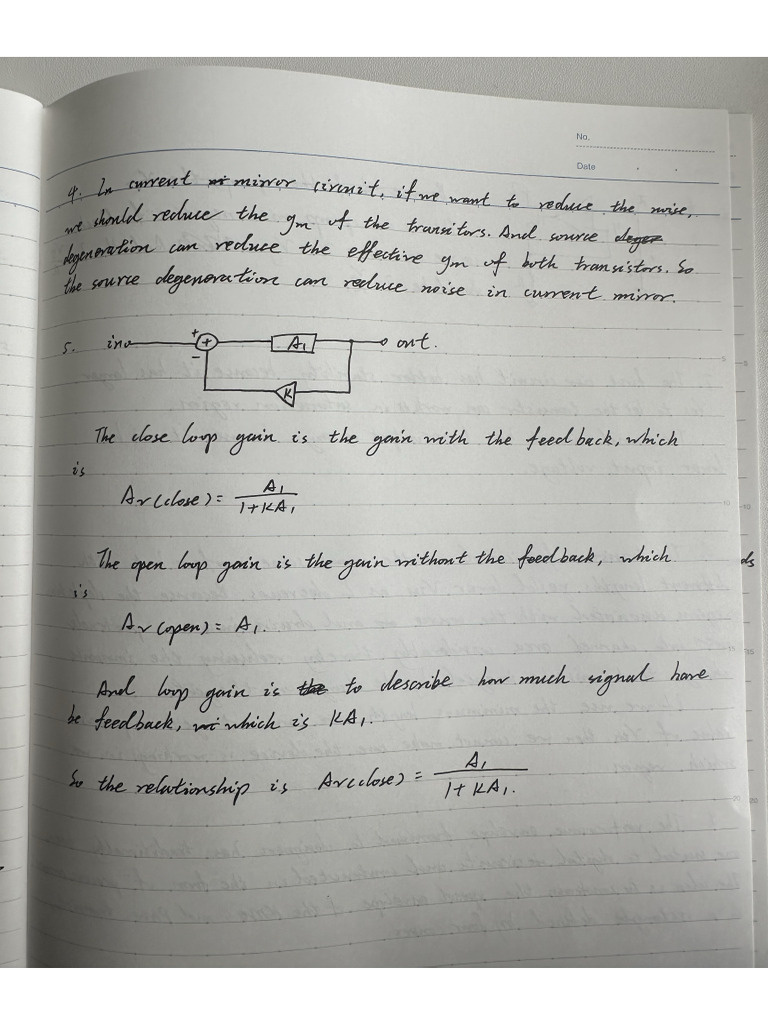 No.
Date
4. In current mirror circuit, if we want to reduce the noise,
we should reduce the gm of the transitors. And source
degeneration can reduce the effective gm of both transistors. So
the source degeneration can reduce noise in current mirror.
5. in + + A1 out.
−
K
The close loop gain is the gain with the feedback, which
is
Av(close) = A1 / 1+KA1
The open loop gain is the gain without the feedback, which
is
Av(open) = A1.
And loop gain is the to describe how much signal have
be feedback, which is KA1.
So the relationship is Av(close) = A1 / 1+KA1.